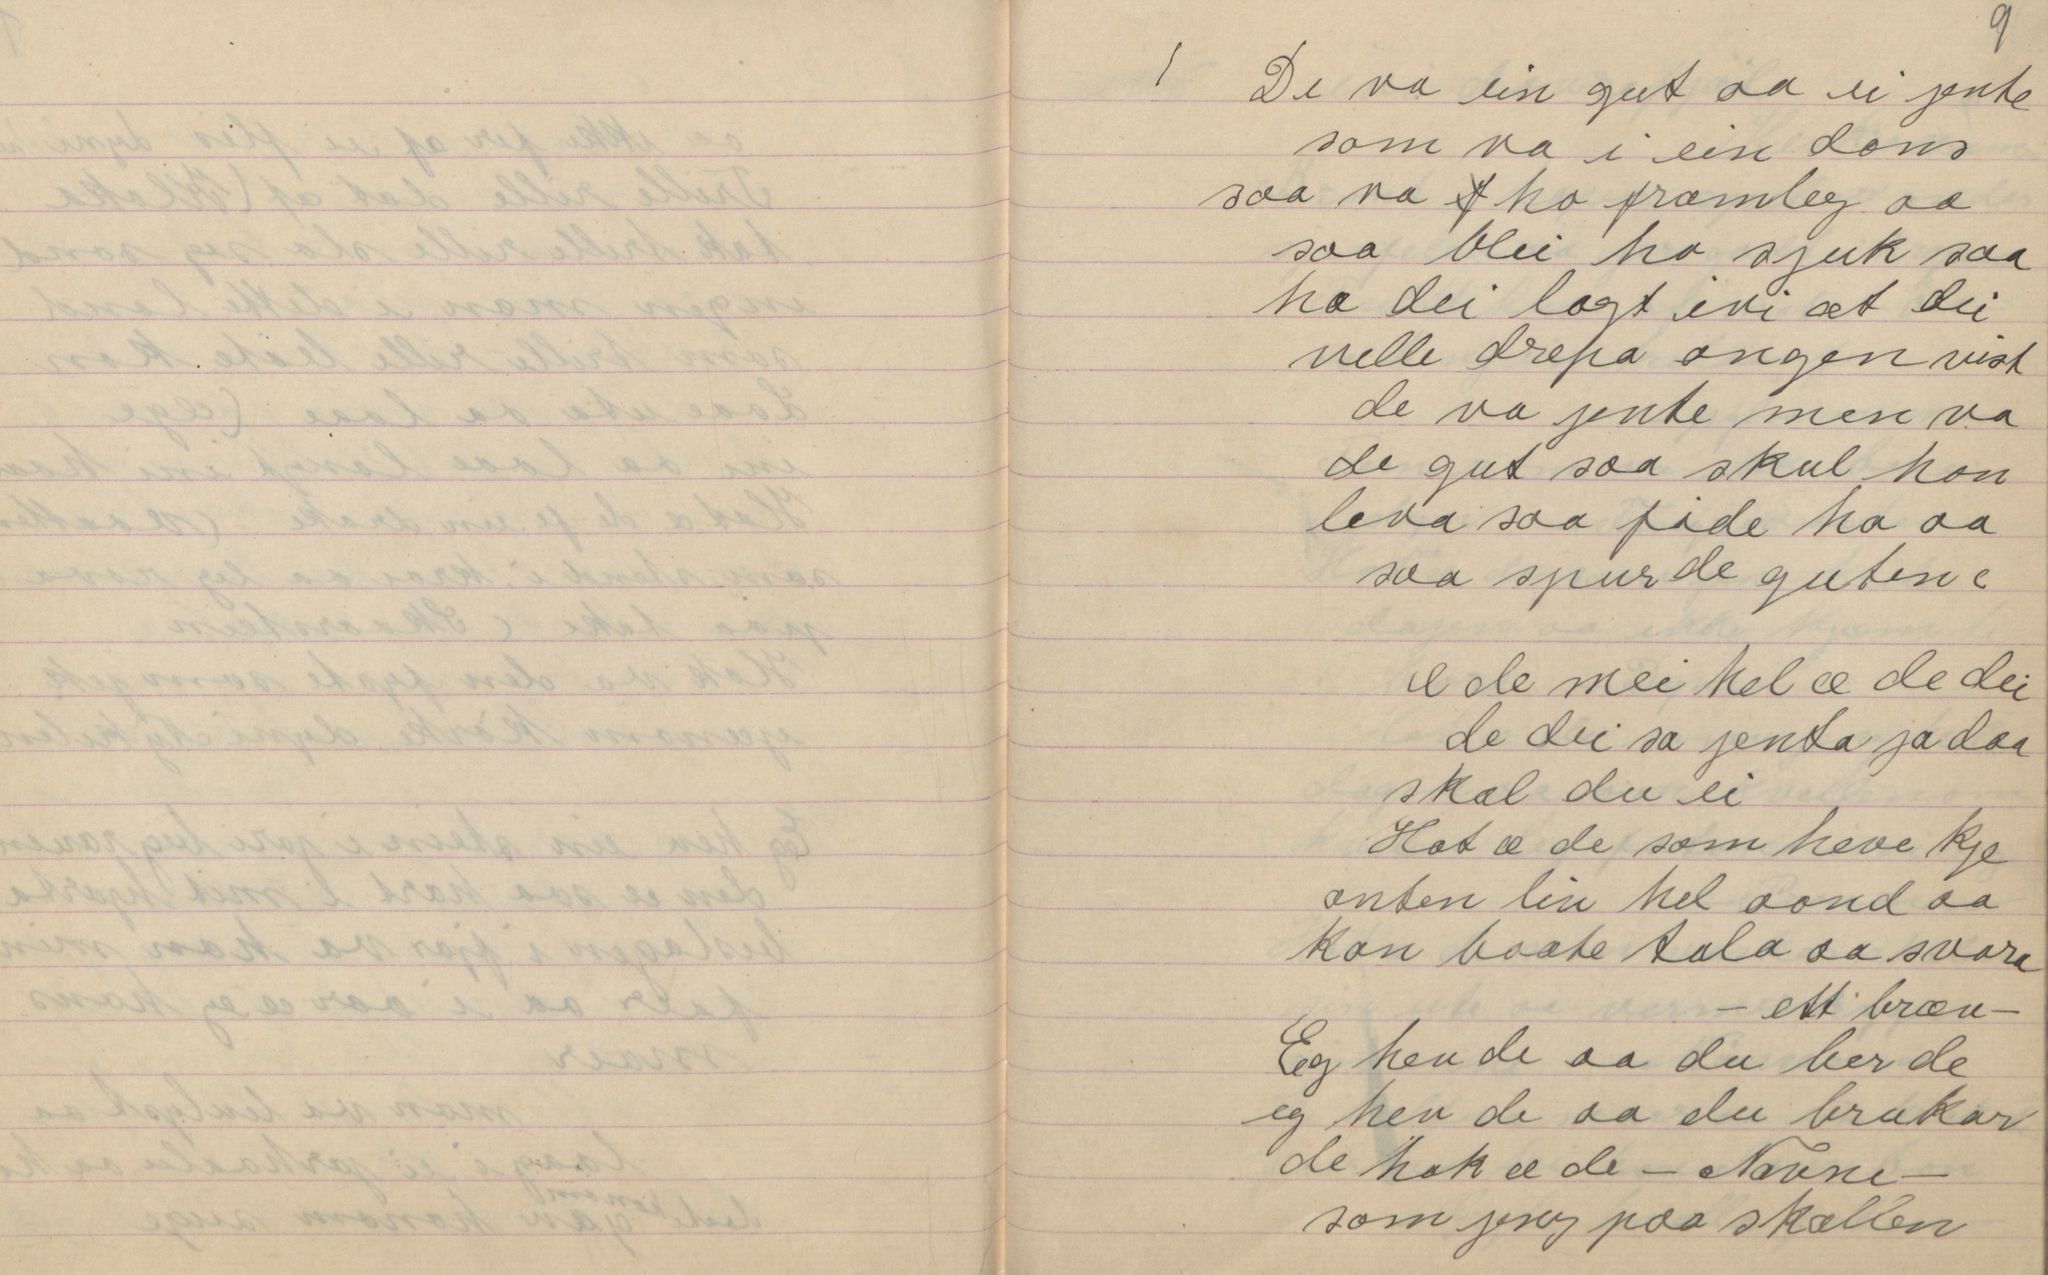 9
1 De va ein gut aa ei jente
som va i ein dans
saa va ho fræmleg aa
saa blei ho sjuk saa
ha dei lagt ivi æt dei
velle drepa ongen vist
de va jente men va
de gut saa skul han
leva saa føde ho aa
saa spurde guten
Æ de mei hel æ de dei
de dei sa jenta ja daa
skal du ei
Hot æ de som heve kje
anten liv hel aand aa
kan baate tala aa svara
– ett bræv –
Eg hev de aa du ber de
eg hev de aa du brukar
de hok æ de – Navne –
som jeng paa skallen